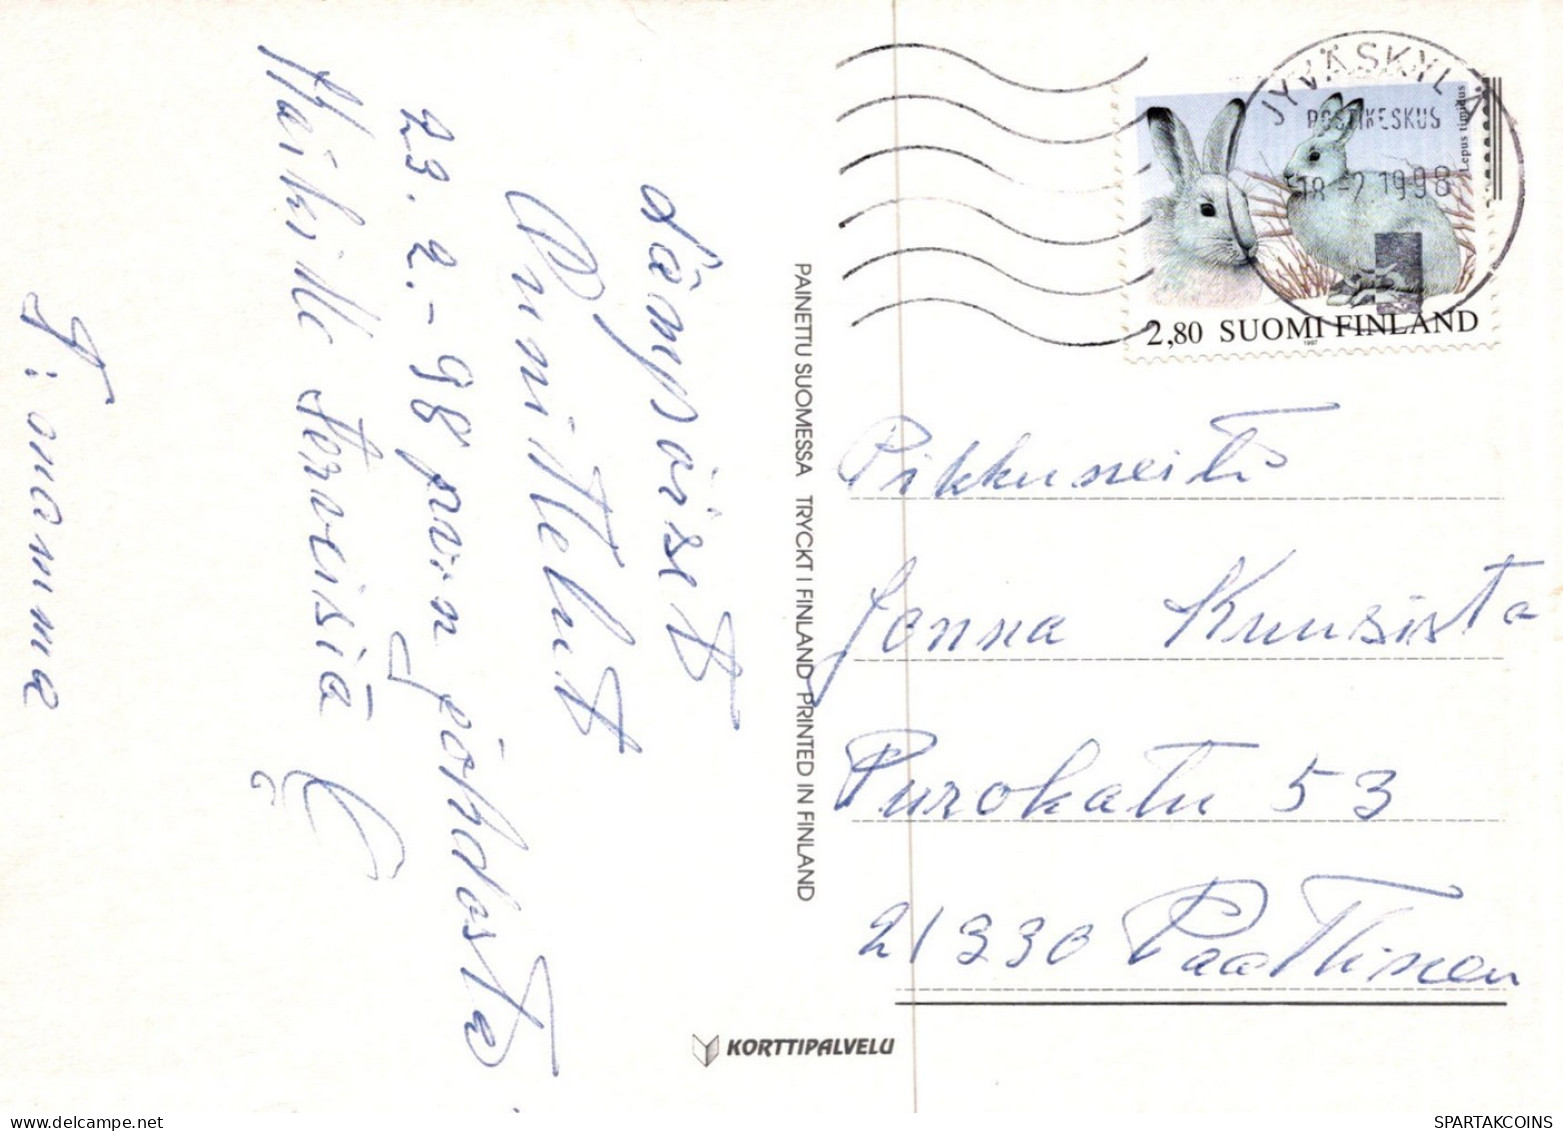 Lämpöiset
Onnittelut
23.2.-98 päi:n johdosta
Heikille terveisiä
T: mamma
PAINETTU SUOMESSA TRYCKT I FINLAND PRINTED IN FINLAND
KORTTIPALVELU
JYVÄSKYLÄ
POSTIKESKUS
18.-2.1998
Lepus timidus
2,80 SUOMI FINLAND
1997
Pikkuneiti
Jonna Kuusisto
Purokatu 53
21330 Paattinen
SPARTAKCOINS